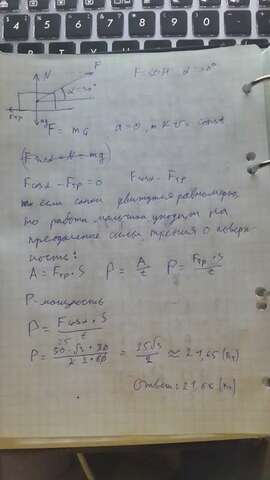 4 5 6 7 8 9 0
N F
α=30°
Fтр
mg
F = 50Н α=30°
F = mg a=0, т.к. v = const
Fsinα + N = mg
Fcosα - Fтр = 0 Fcosα = Fтр
если санки движутся равномерно,
то работа мальчика уходит на
преодоление силы трения о поверх-
ность:
A = Fтр · S P = A/t P = Fтр · S/t
P - мощность
P = Fcosα · S/t
P = 50 · √3 · 30/2 · 60 = 25√3/2 ≈ 21,65 (Вт)
Ответ: 21,65 (Вт)